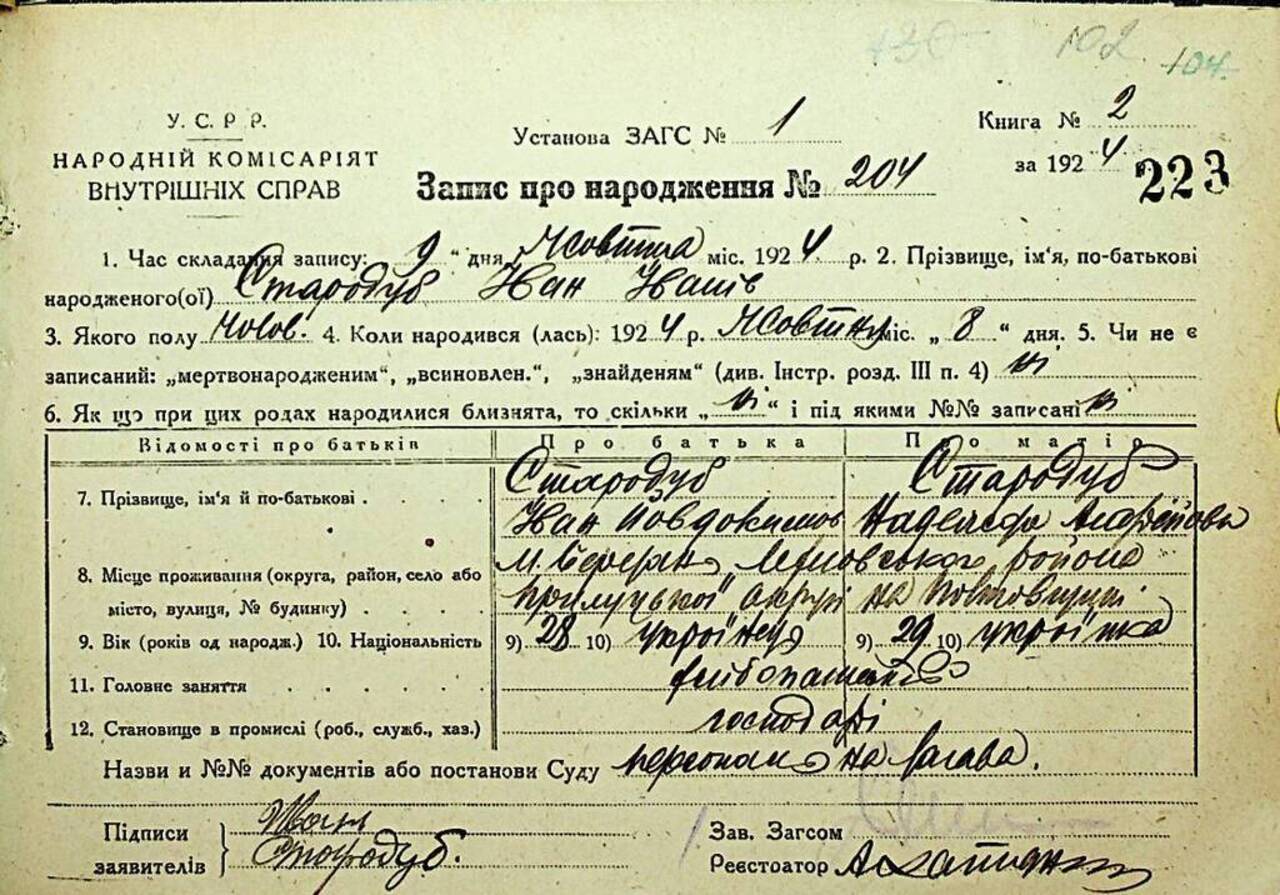 130 102 104
У. С. Р. Р.
НАРОДНІЙ КОМІСАРІЯТ
ВНУТРІШНІХ СПРАВ
Установа ЗАГС № 1
Книга № 2
за 1924
223
Запис про народження № 204
1. Час складання запису: 9 " дня Жовтня міс. 1924 р. 2. Прізвище, ім'я, по-батькові
народженого(ої) Стародуб Іван Іванів
3. Якого полу Чолов. 4. Коли народився (лась): 1924 р. Жовтня міс. „ 8 " дня. 5. Чи не є
записаний: „мертвонародженим", „всиновлен.", „знайденям" (див. Інстр. розд. III п. 4) ні
6. Як що при цих родах народилися близнята, то скільки „ ні " і під якими №№ записані ні
Відомості про батьків Про батька Про матір
7. Прізвище, ім'я й по-батькові . . . . Стародуб Стародуб
Іван Йовдокимов
8. Місце проживання (округа, район, село або
місто, вулиця, № будинку) . . . . Прилуцької округи на
9. Вік (років од народж.) 10. Національність 9) 28 10) українець 9) 29 10) українка
11. Головне заняття . . . . .
12. Становище в промислі (роб., служб., хаз.) господарі
Назви и №№ документів або постанови Суду на
Підписи
заявителів
Стародуб.
Зав. Загсом
Реєстоатор